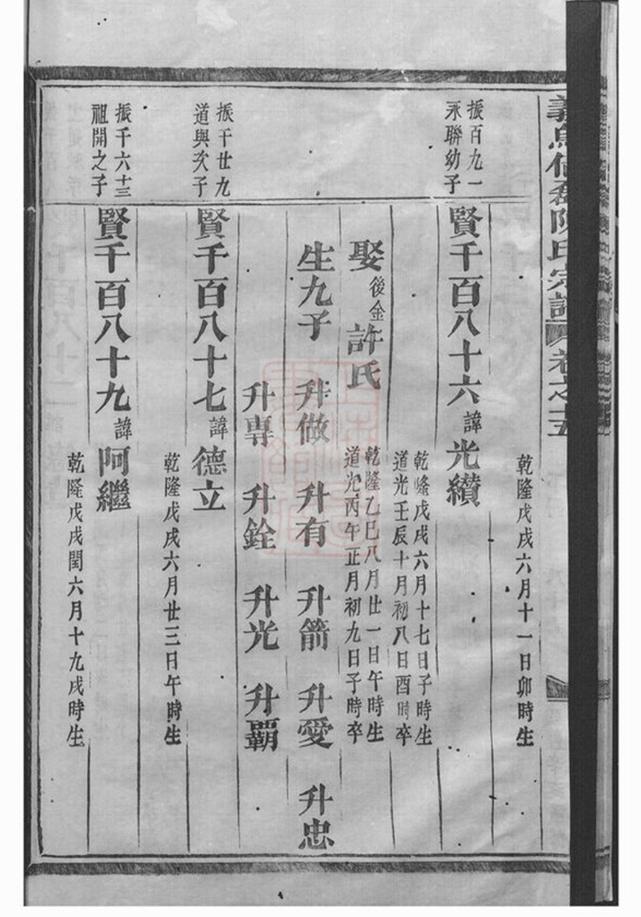 義烏倍磊陳氏宗譜 卷之五
乾隆戊戌六月十一日卯時生
振百九一
永聯幼子
賢千百八十六 諱 光纘
乾隆戊戌六月十七日子時生
道光壬辰十月初八日酉時卒
娶 後金 許氏
乾隆乙巳八月廿一日午時生
道光丙午正月初九日子時卒
生九子 升做 升有 升箭 升愛 升忠
升專 升銓 升光 升霸
振千廿九
道與次子
賢千百八十七 諱 德立
乾隆戊戌六月廿三日午時生
振千六十三
祖開之子
賢千百八十九 諱 阿繼
乾隆戊戌閏六月十九戌時生